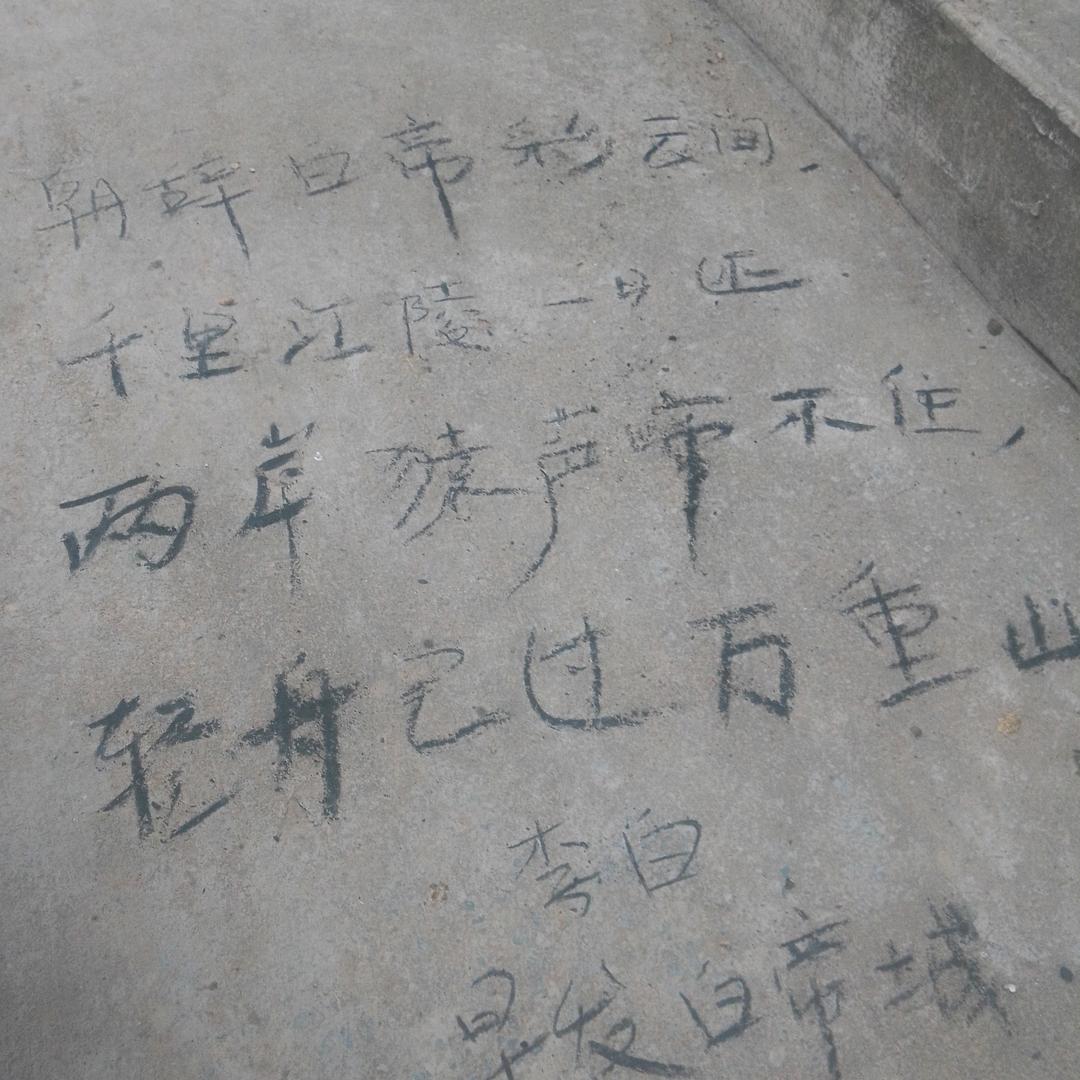 朝辞白帝彩云间,
千里江陵一日还
两岸猿声啼不住,
轻舟已过万重山
李白
早发白帝城